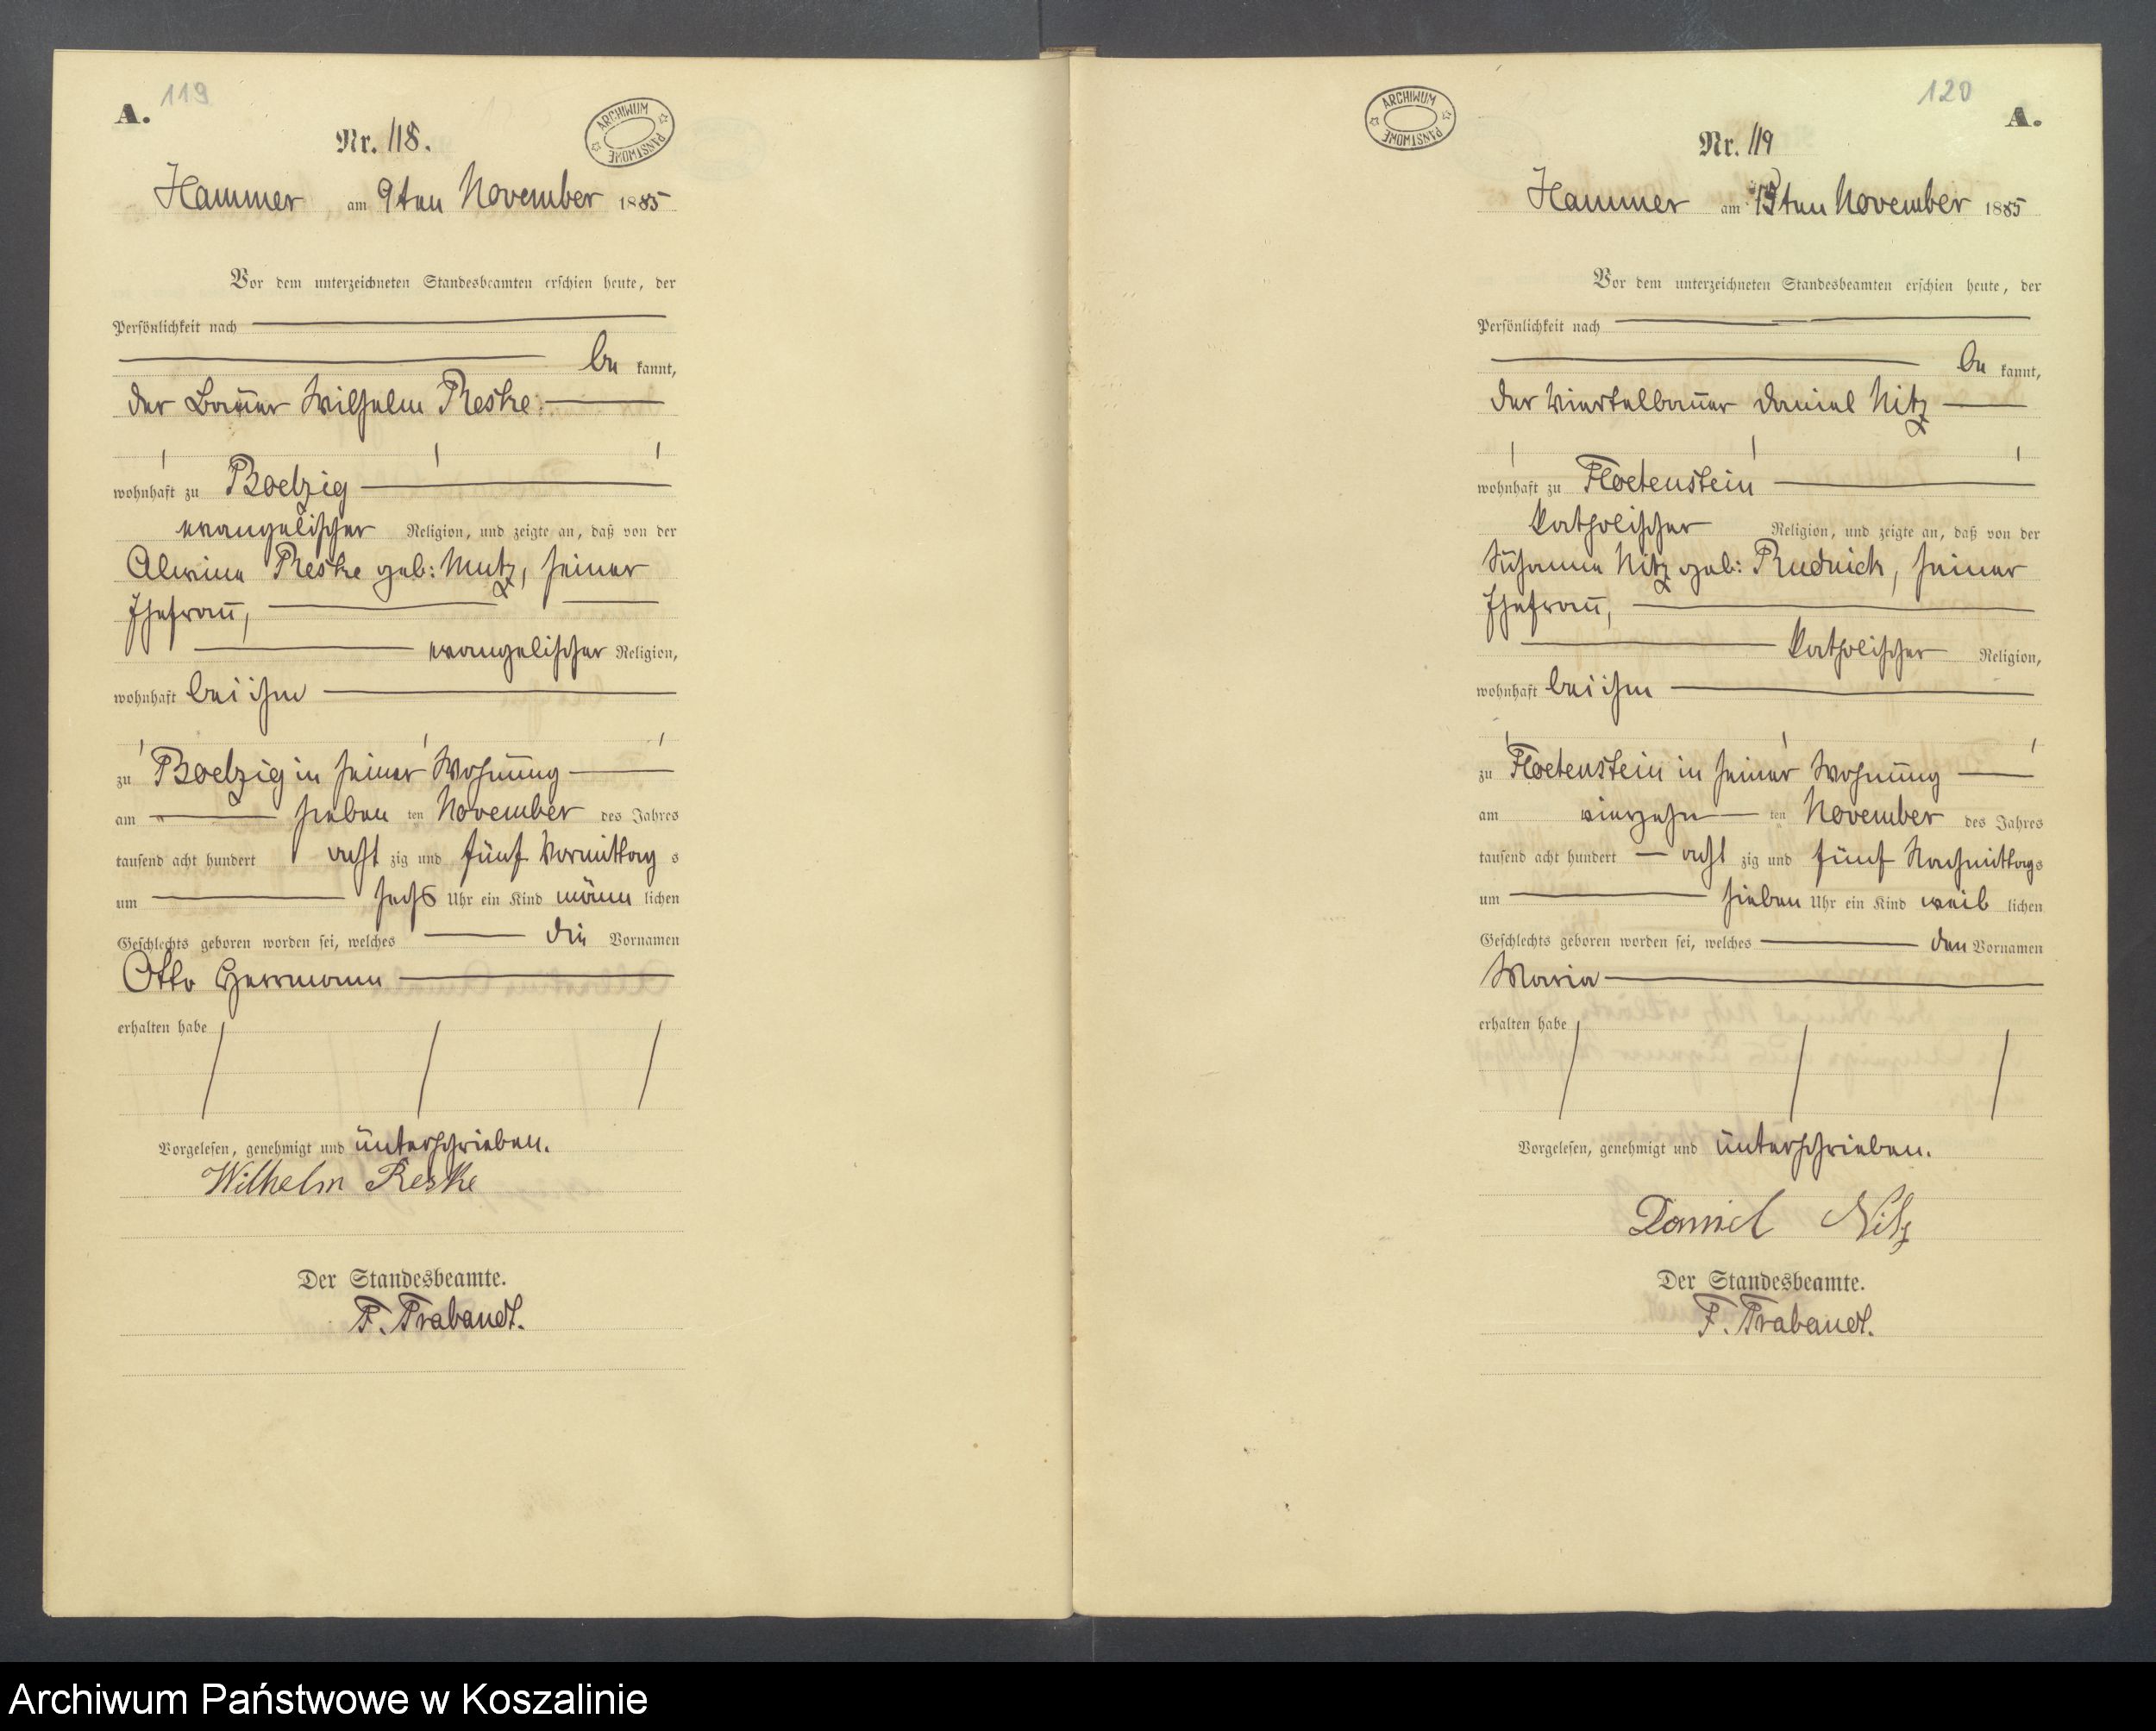 119
A.
Nr. 118.
ARCHIWUM PAŃSTWOWE
Hammer am 9ten November 1885
Vor dem unterzeichneten Standesbeamten erschien heute, der
Persönlichkeit nach
be kannt,
der Bauer Wilhelm Reske
wohnhaft zu Boelzig
evangelischer Religion, und zeigte an, daß von der
Alwine Reske geb: Mutz, seiner
Ehefrau,
evangelischer Religion,
wohnhaft bei ihm
zu Boelzig in seiner Wohnung
am sieben ten November des Jahres
tausend acht hundert acht zig und fünf Vormittag s
um sechs Uhr ein Kind männ lichen
Geschlechts geboren worden sei, welches die Vornamen
Otto Herrmann
erhalten habe
Vorgelesen, genehmigt und unterschrieben.
Wilhelm Reske
Der Standesbeamte.
F. Trabandt.
120
A.
Nr. 119
ARCHIWUM PAŃSTWOWE
Hammer am ten November 1885
Vor dem unterzeichneten Standesbeamten erschien heute, der
Persönlichkeit nach
be kannt,
der Viertelbauer Daniel Nitz
wohnhaft zu Floetenstein
katholischer Religion, und zeigte an, daß von der
Susanna Nitz geb: Rudnick, seiner
Ehefrau,
katholischer Religion,
wohnhaft bei ihm
zu Floetenstein in seiner Wohnung
am vierzehn ten November des Jahres
tausend acht hundert acht zig und fünf Nachmittags
um sieben Uhr ein Kind weib lichen
Geschlechts geboren worden sei, welches den Vornamen
Maria
erhalten habe
Vorgelesen, genehmigt und unterschrieben.
Daniel Nitz
Der Standesbeamte.
F. Trabandt.
Archiwum Państwowe w Koszalinie